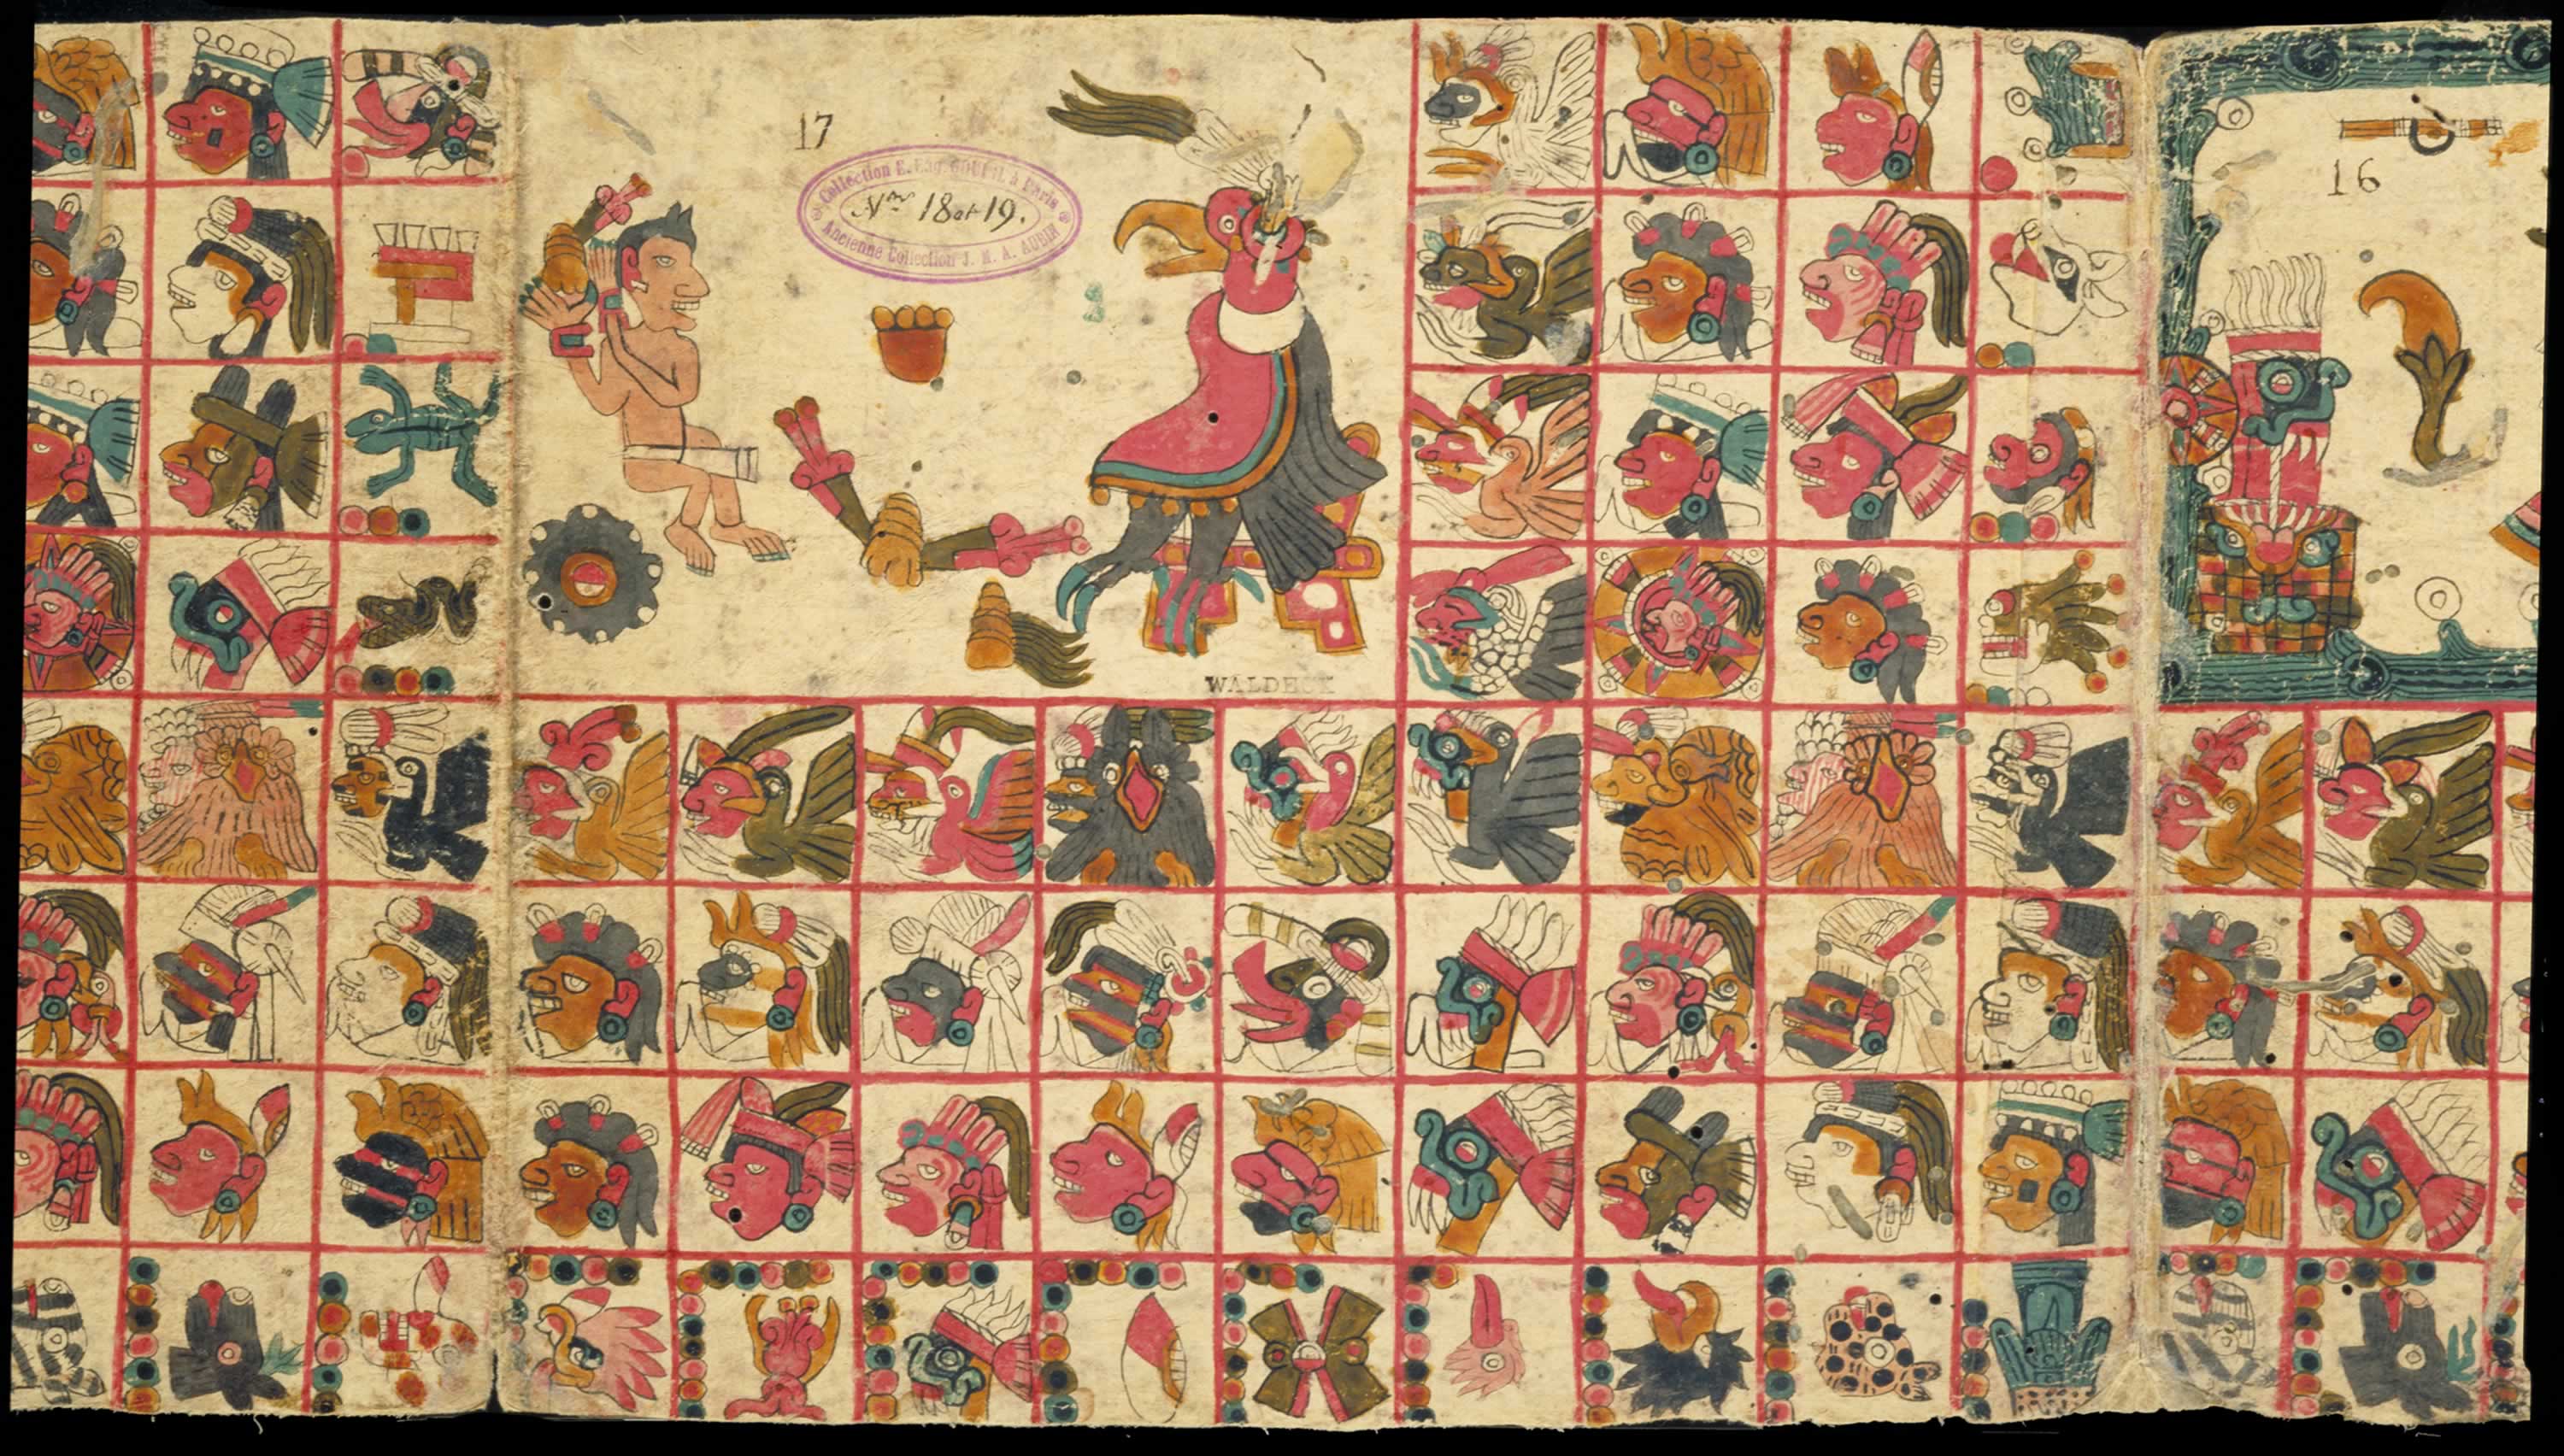 17
Collection E. Eug. GOUPIL à Paris
Nos 18 et 19.
Ancienne Collection J. M. A. AUBIN
WALDECK
16